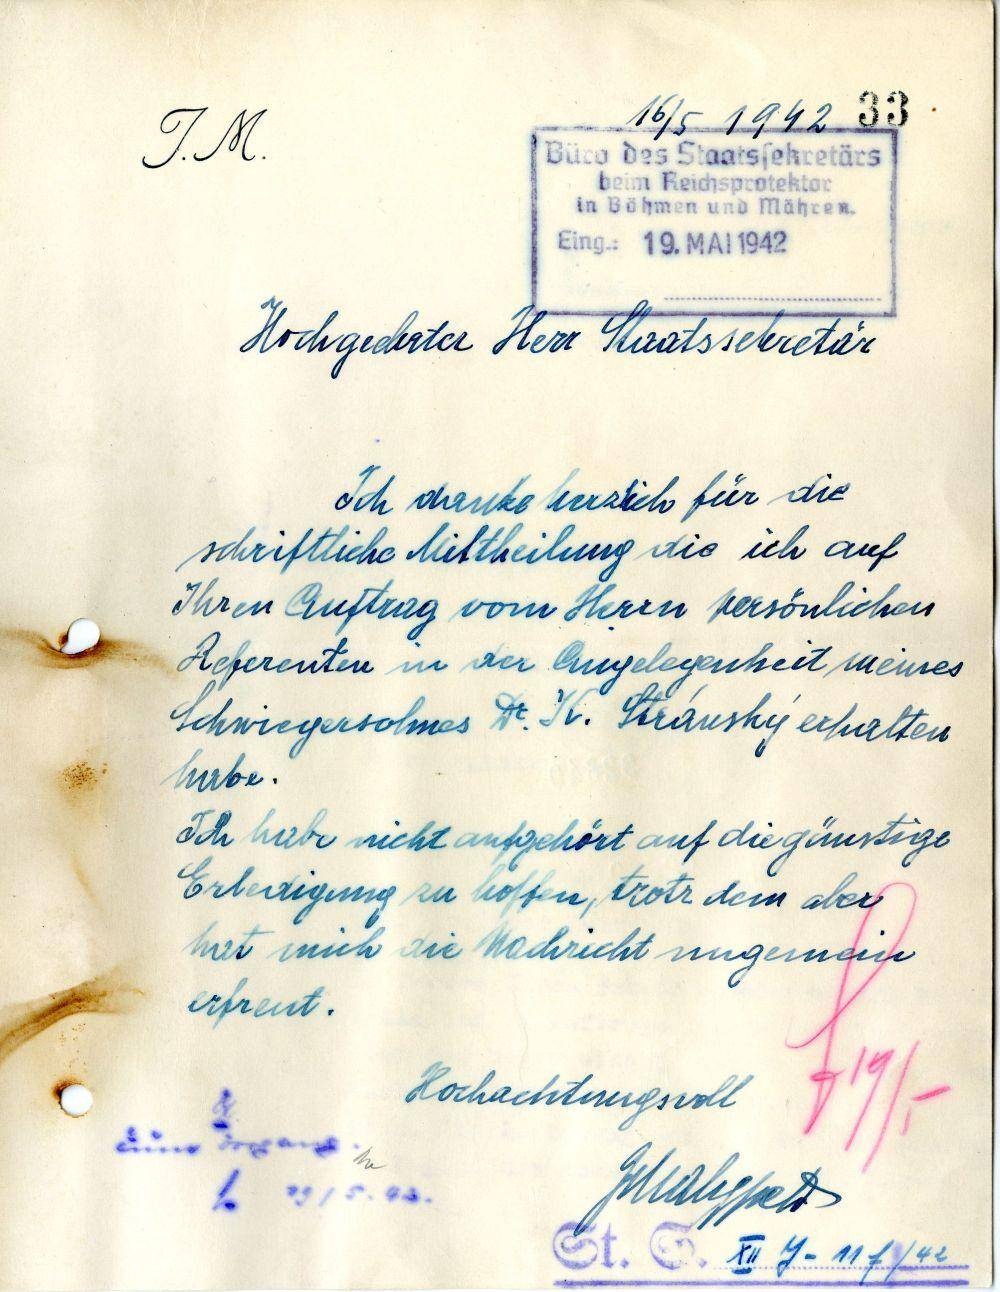 J. M.
16/5 1942 33
Büro des Staatssekretärs
beim Reichsprotektor
in Böhmen und Mähren.
Eing.: 19. MAI 1942
Hochgeehrter Herr Staatssekretär
Ich danke herzlich für die
schriftliche Mittheilung die ich auf
Ihren Auftrag vom Herrn persönlichen
Referenten in der Angelegenheit meines
Schwiegersohnes Dr. K. Stránský erhalten
habe.
Ich habe nicht aufgehört auf die günstige
Erledigung zu hoffen, trotz dem aber
hat mich die Nachricht ungemein
erfreut.
Hochachtungsvoll
19/5
zum Vorgang.
19/5. 42.
St. S. XII J - 11 f/42